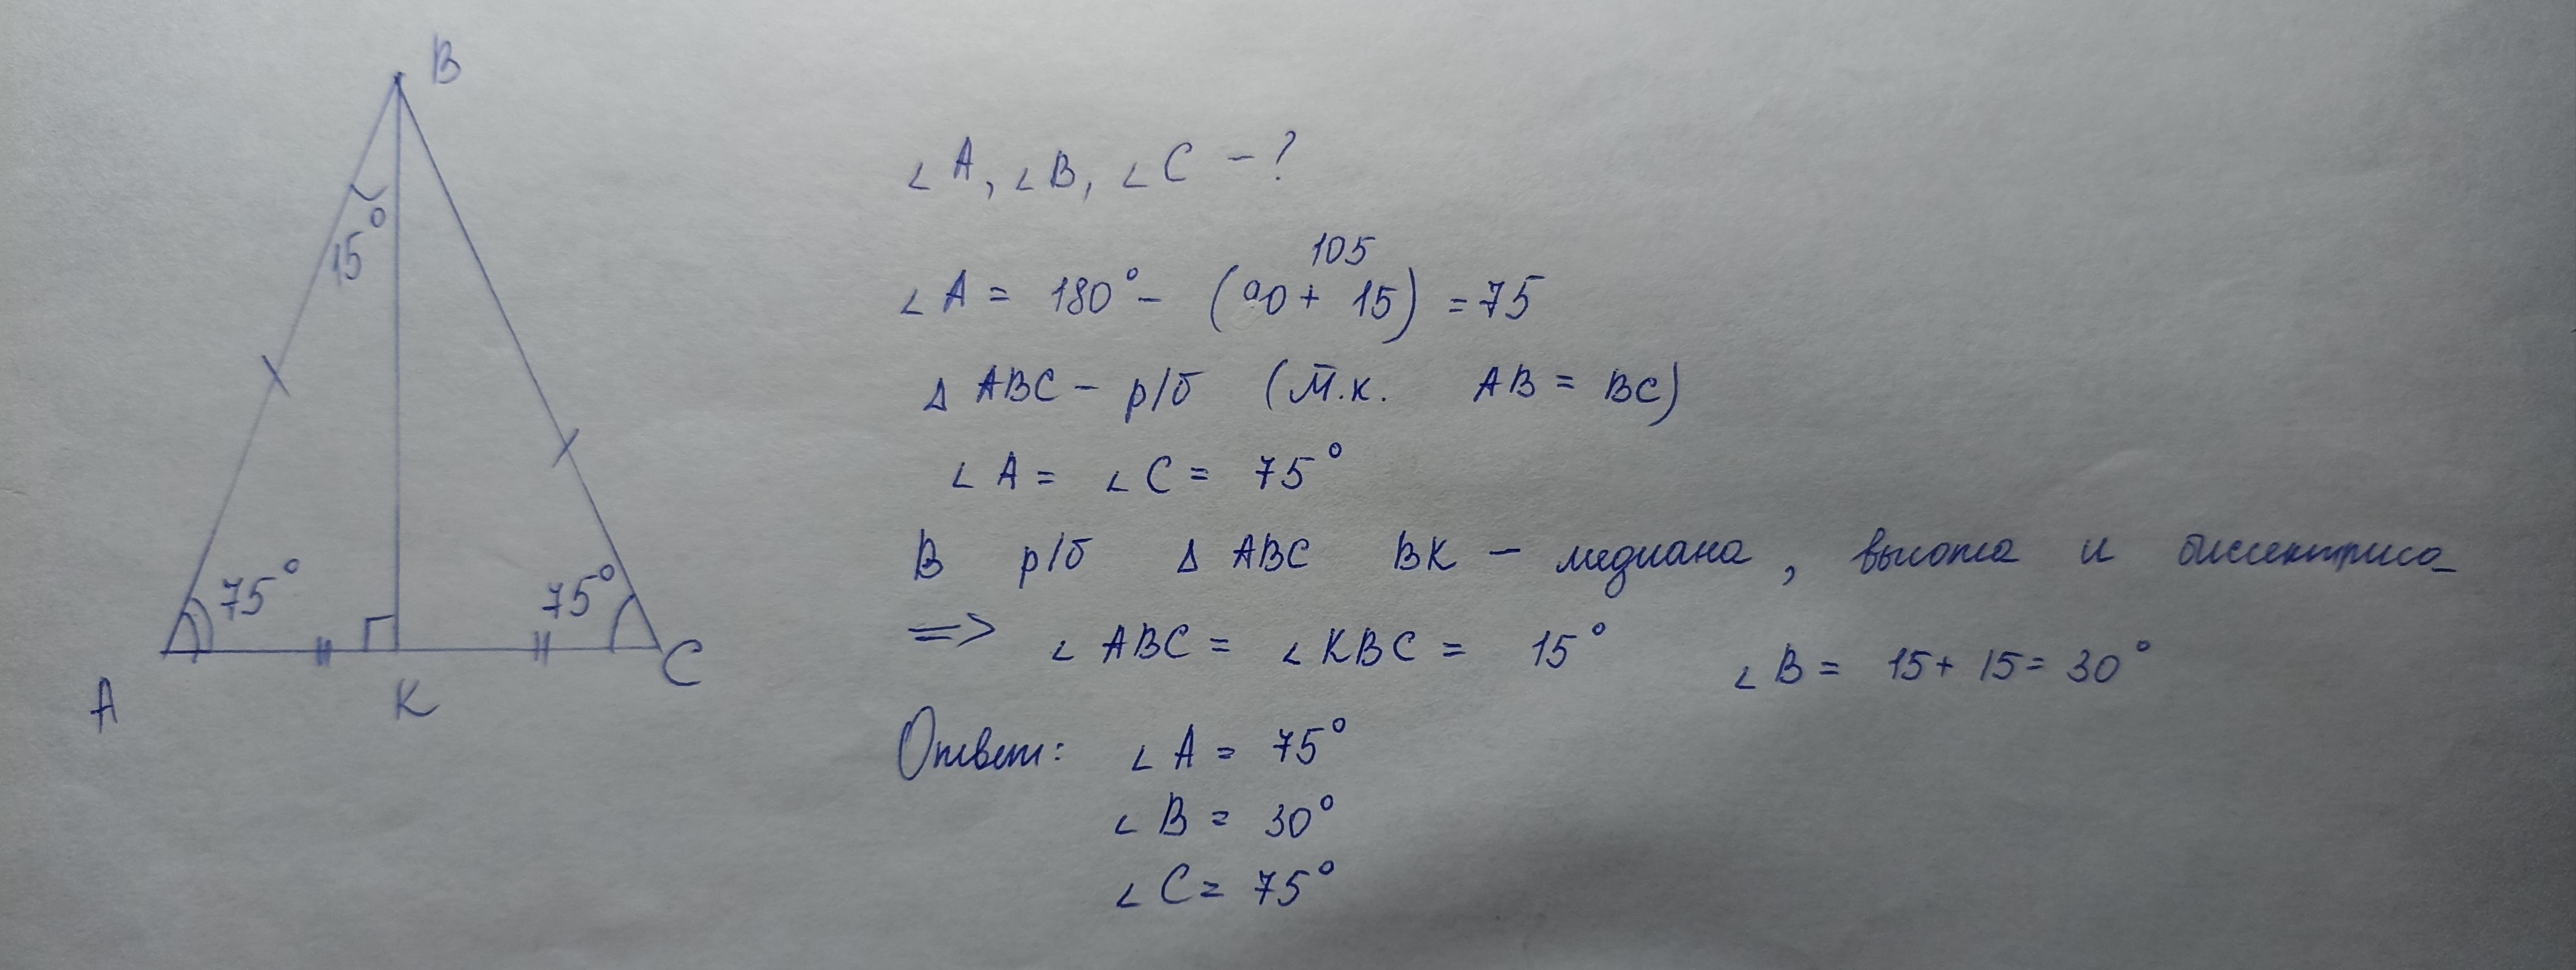 B
15°
75°
75°
A
K
C
∠A, ∠B, ∠C - ?
105
∠A = 180° - (90 + 15) = 75
Δ ABC - р/б (т.к. AB = BC)
∠A = ∠C = 75°
В р/б Δ ABC BK - медиана, высота и биссектриса
=> ∠ABC = ∠KBC = 15° ∠B = 15 + 15 = 30°
Ответ: ∠A = 75°
∠B = 30°
∠C = 75°